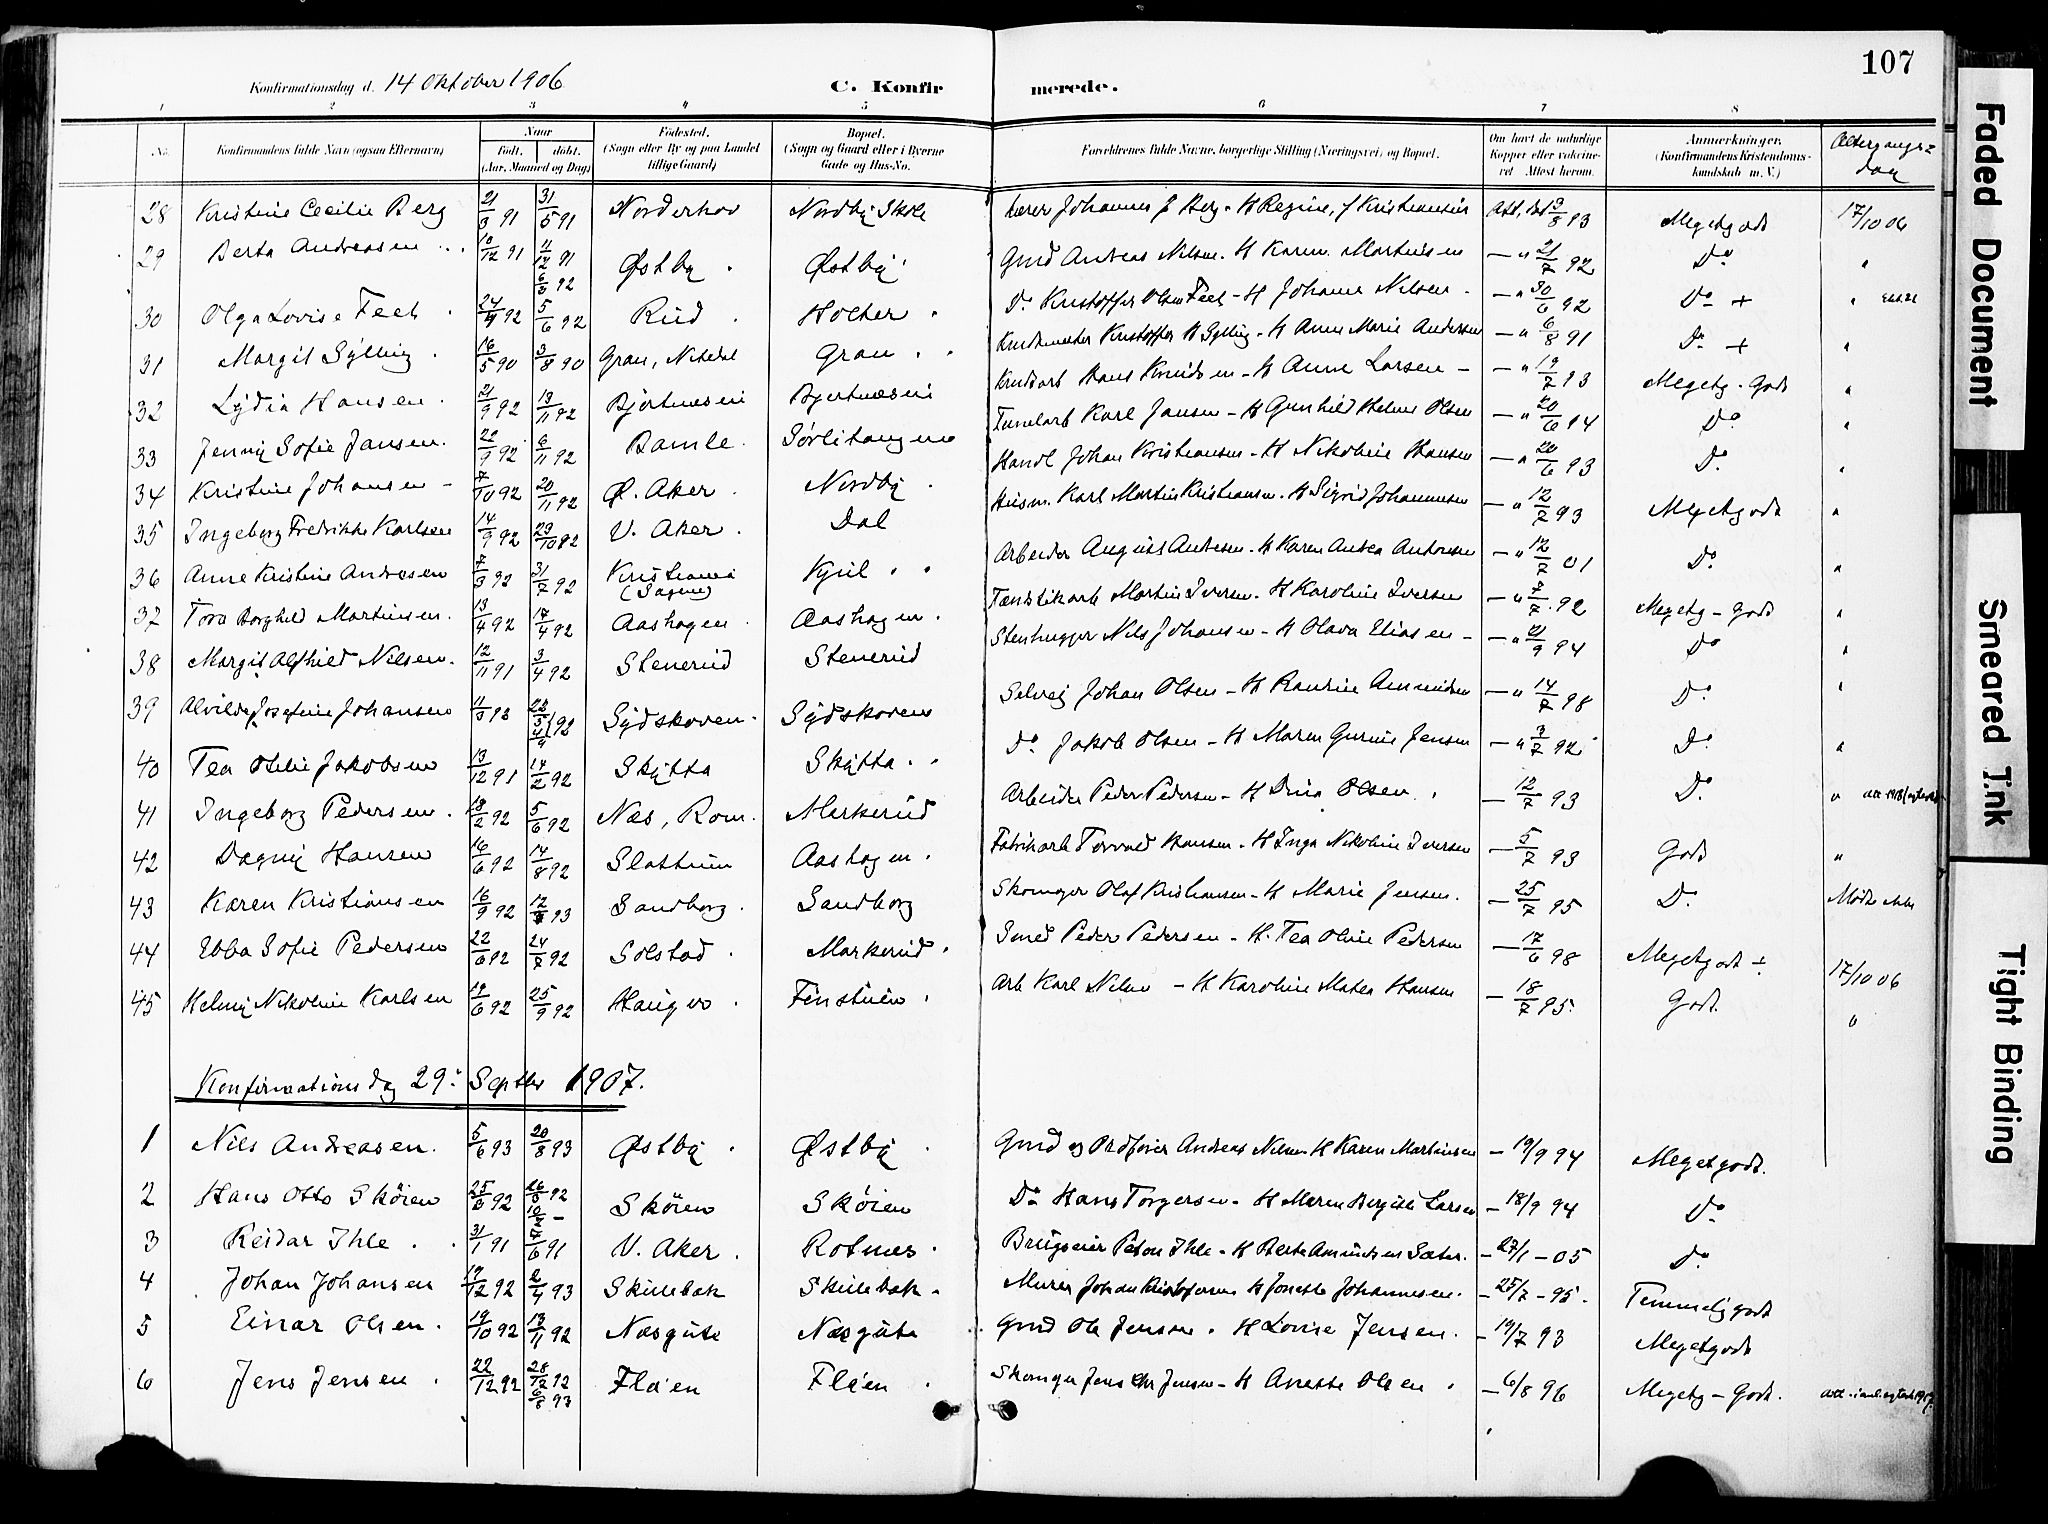 107
Konfirmationsdag d. 14 Oktober 1906 C. Konfirmerede.
1 2 3 4 5 6 7 8
No. Konfirmandens fulde Navn (ogsaa Efternavn) Naar Født. døbt. (Aar, Maaned og Dag) Fødested. (Sogn eller By og paa Landet tillige Gaard) Bopæl. (Sogn og Gaard eller i Byerne Gade og Hus-No. Forældrenes fulde Navne, borgerlige Stilling (Næringsvei) og Bopæl. Om havt de naturlige Kopper eller vakcineret. Attest herom. Anmærkninger. (Konfirmandens Kristendomskundskab m. V.) Altergangsdag
28 Kristine Cecilie Berg 21/3 91 31/5 91 Norderhov Nordby Skole Lærer Johannes J Berg - H Regine, f Kristiansen Att, dat 9/8 93 Megetgodt 17/10 06
29 Berta Andreasen 10/12 91 11/12 91 6/3 92 Østby Østby Grd Andreas Nilsen - H Karen Martinsen - " 21/7 92 Do "
30 Olga Lovise Feel 24/4 92 5/6 92 Rud Holter Do Kristoffer Olsen Feel - H Johanne Nilsen - " 30/6 92 Do + "
31 Margit Sylling 16/5 90 3/8 90 Gran, Nitedal Gran Kristoffer H Sylling - H Anne Marie Andersen - " 6/8 91 Do + "
32 Lydia Hansen 21/9 92 13/11 92 Bjertnæseie Bjertnæseie Hans Knudsen - H Anne Larsen - - " 19/7 93 Megetg - Godt "
33 Jenny Sofie Jansen 22/9 92 6/11 92 Bamle Sørlihaugen Karl Jansen - H Gunhild Helene Olsen - " 20/6 94 Do "
34 Kristine Johansen 7/10 92 20/11 92 Ø. Aker Nordby Handl Johan Kristiansen - H Nikoline Hansen - " 20/6 93 Do "
35 Ingeborg Fredrikke Karlsen 14/9 92 23/10 92 V. Aker Dal Husm. Karl Martin Kristiansen - H Sigrid Johannesen - " 12/7 93 Megetgodt "
36 Anne Kristine Andresen 7/3 92 31/7 92 Kristiania (Sagene) Kjul Arbeider August Andresen - H Karen Andrea Andresen - " 12/7 01 Do "
37 Tora Borghild Martinsen 13/4 92 17/4 92 Aashagen Aashagen Martin Iversen - H Karoline Iversen - " 7/7 92 Megetg - Godt "
38 Margit Alfhild Nilsen 12/11 91 3/4 92 Stenerud Stenerud Stenhugger Nils Johansen - H Olava Eliasen - " 21/9 94 Do "
39 Alvilde Josefine Johansen 11/3 92 Sydskoven Sydskoven Selvej Johan Olsen - H Amundsen - " 14/7 98 Do "
40 Tea Otelie Jakobsen 13/12 91 14/2 92 Skytta Skytta Do Jakob Olsen - H Maren Gurine Jensen - " 3/7 92 Do "
41 Ingeborg Pedersen 18/2 92 5/6 92 Næs, Rom. Markerud Arbeider Peder Pedersen - H Dina Olsen - 12/7 93 Do "
42 Dagny Hansen 16/6 92 14/8 92 Slattum Aashagen Fabrikarb Torvald Hansen - H Inga Nikoline Iversen - 5/7 93 Godt "
43 Karen Kristiansen 16/9 92 12/ 93 Sandborg Sandborg Skomager Olaf Kristiansen - H Marie Jensen - 25/7 95 Do Mødte ikke
44 Ebba Sofie Pedersen 22/6 92 24/7 92 Solstad Markerud Smed Peder Pedersen - H. Tea Oline Pedersen - 17/6 98 Megetgodt + 17/10 06
45 Helmy Nikoline Karlsen 19/6 92 25/9 92 Haugvo Finstuen Arb Karl Nilsen - H Karoline Matea Hansen - 18/7 95 Godt "
Konfirmationsdag 29. Septbr 1907.
1 Nils Andreasen 5/6 93 20/8 93 Østby Østby Grd og Ordfører Andreas Nilsen H Karen Martinsen - 19/9 94 Megetgodt.
2 Hans Otto Skøien 25/6 92 Skøien Skøien Do Hans Torgersen - H Maren Bergitte Larsen - 18/9 94 Do
3 Reidar Ihle 31/1 91 91 V. Aker Rotnes Brugseier Ihle - H Berte Amundsen Sæter - 27/1 - 05 Do
4 Johan Johansen 19/12 92 2/4 93 Skillebæk Skillebæk Murer Johan Kristofersen H Jonette Johannesen - 25/7 - 95 Temmelig godt
5 Einar Olsen 19/10 92 13/11 92 Næsgutu Næsgutu Grd Ole Jensen - H Lovise Jensen - 19/7 93 Megetgodt
6 Jens Jensen 22/12 92 28/12 92 6/8 93 Flaen Flaen Skomager Jens Chr Jensen - H Anette Olsen - 6/8 96 Megetg - Godt.
Faded Document
Smeared Ink
Tight Binding